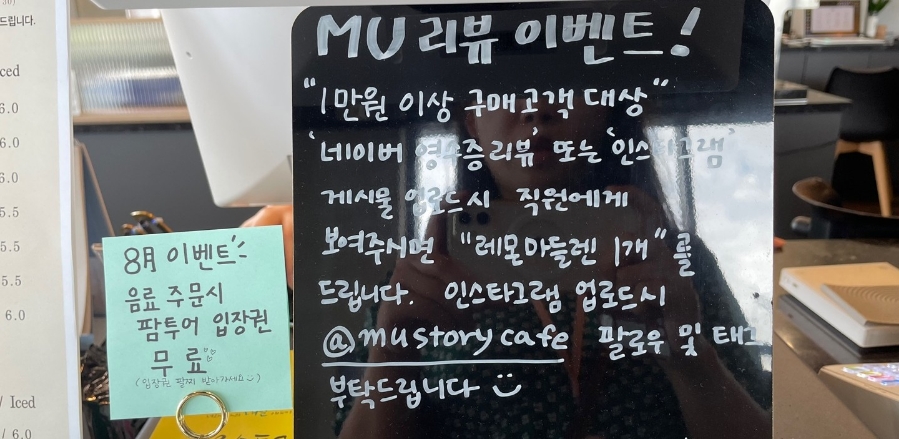 드립니다.
ced
6.0
6.0
6.0
5.5
5.5
5.5
6.0
/ Iced
/ 6.0
8月 이벤트
음료 주문시
팜투어 입장권
무료
(입장권 팔찌 받아가세요)
MU 리뷰 이벤트!
"1만원 이상 구매고객 대상"
'네이버 영수증리뷰' 또는 '인스타그램'
게시물 업로드시 직원에게
보여주시면 "레몬마들렌 1개"를
드립니다. 인스타그램 업로드시
@mustorycafe 팔로우 및 태그
부탁드립니다